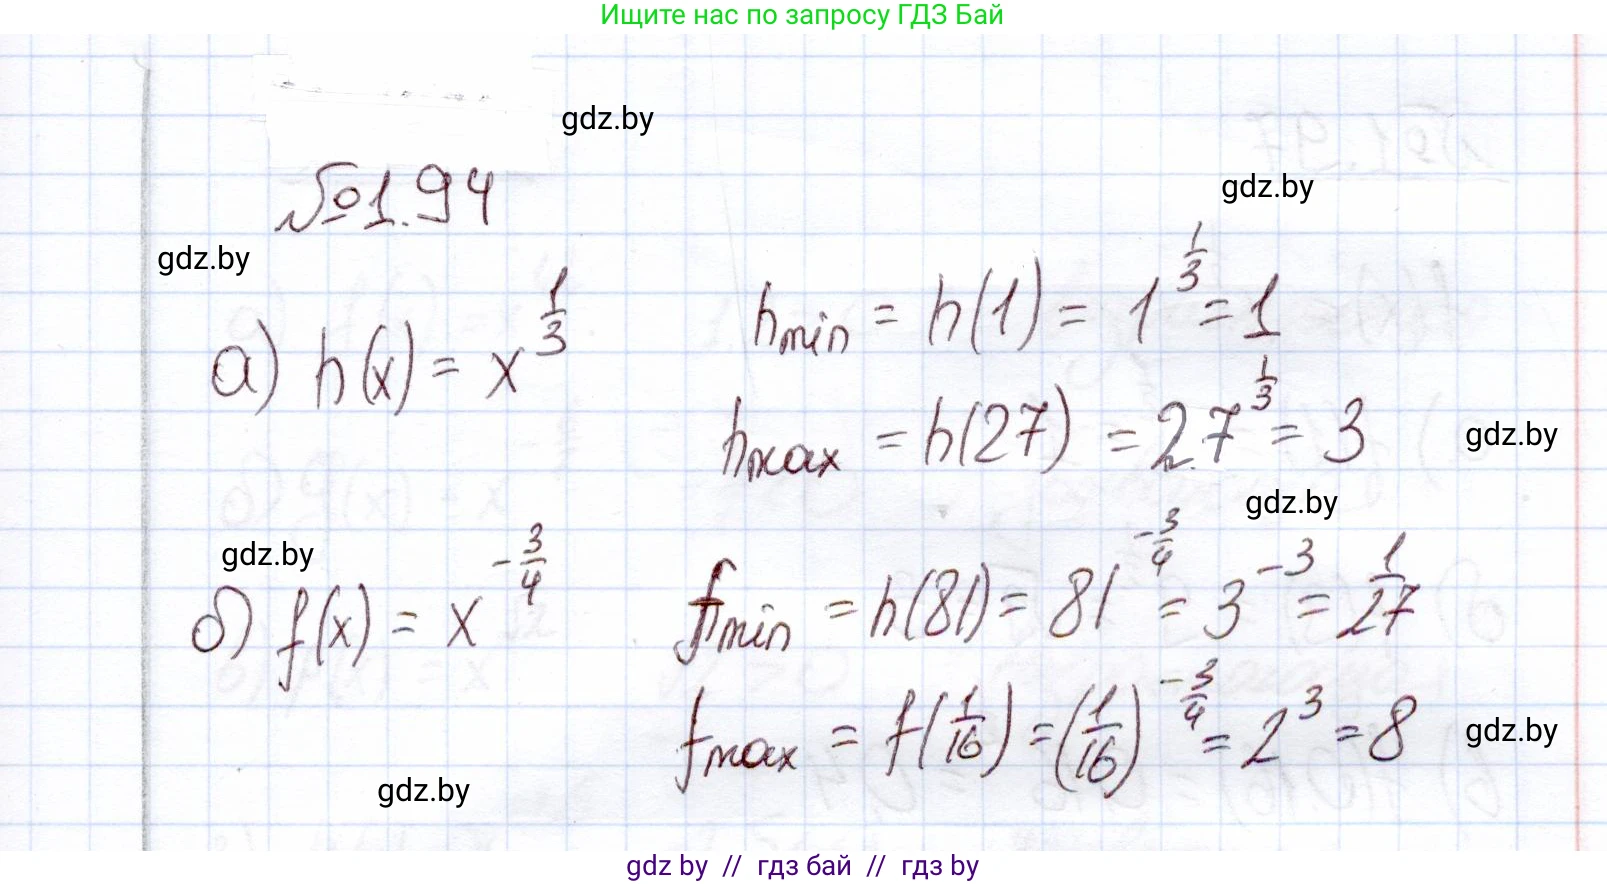 Ищите нас по запросу ГДЗ Бай
gdz.by
№1.94
gdz.by
gdz.by
а) h(x) = x^{1/3}
h_{min} = h(1) = 1^{1/3} = 1
h_{max} = h(27) = 27^{1/3} = 3
gdz.by
gdz.by
gdz.by
б) f(x) = x^{-3/4}
f_{min} = h(81) = 81^{-3/4} = 3^{-3} = 1/27
f_{max} = f(1/16) = (1/16)^{-3/4} = 2^3 = 8
gdz.by
gdz.by
gdz by // гдз бай // гдз by